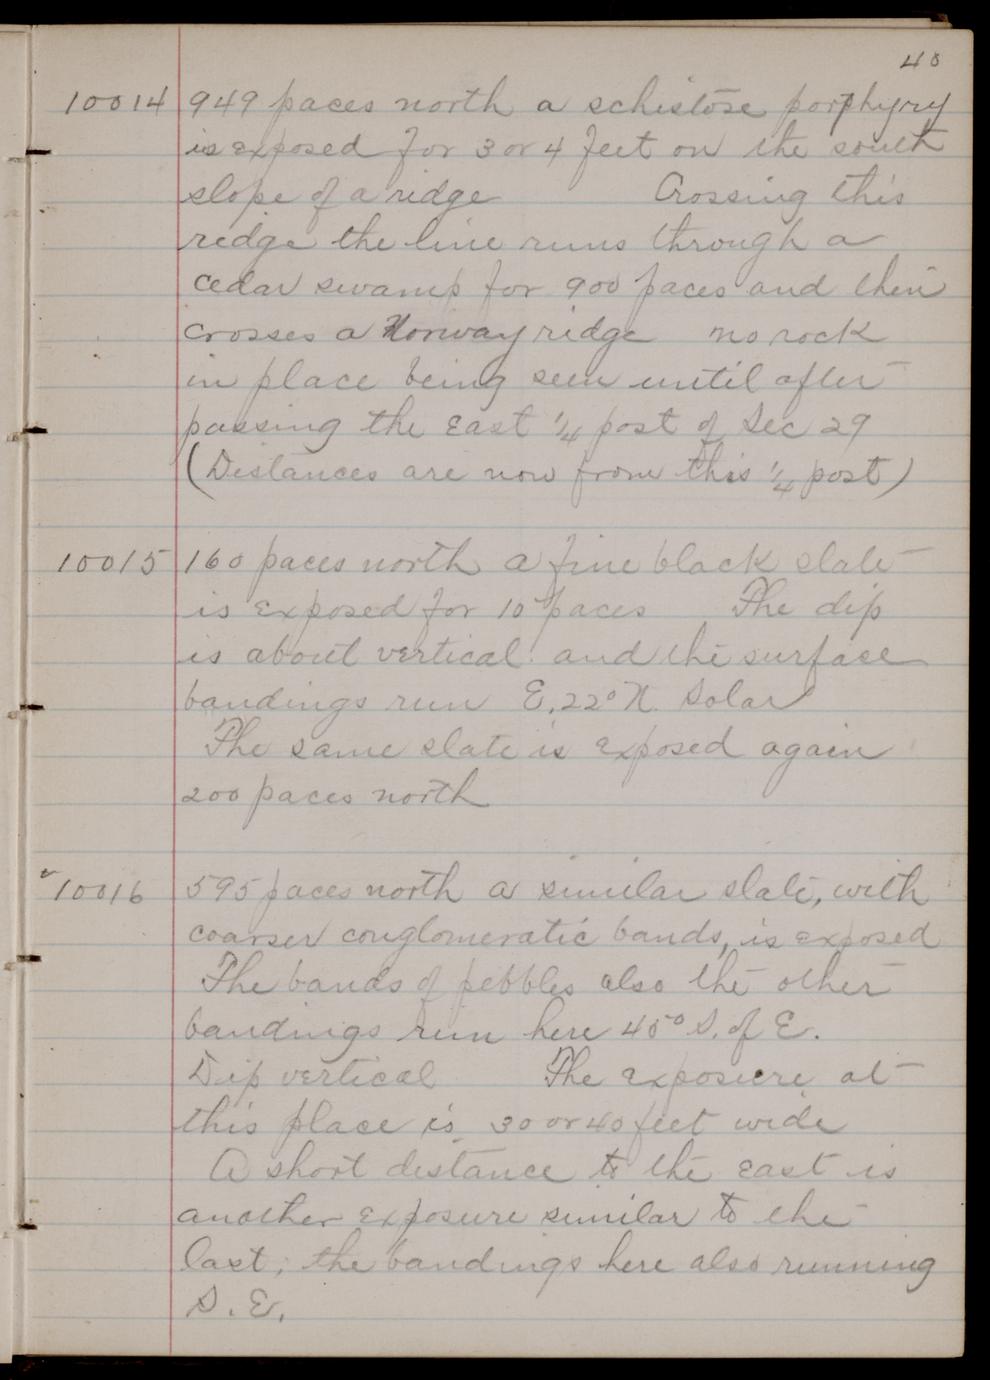 40
10014 949 paces north a schistose porphyry
is exposed for 3 or 4 feet on the south
slope of a ridge Crossing this
ridge the line runs through a
cedar swamp for 900 paces and then
crosses a Norway ridge no rock
in place being seen until after
passing the East 1/4 post of Sec 29
(Distances are now from this 1/4 post)
10015 160 paces north a fine black slate
is exposed for 10 paces The dip
is about vertical and the surface
bandings run E. 22° N. Solar
The same slate is exposed again
200 paces north
10016 595 paces north a similar slate, with
coarser conglomeratic bands, is exposed
The bands of pebbles also the other
bandings run here 45° S. of E.
Dip vertical The exposure at
this place is 30 or 40 feet wide
A short distance to the east is
another exposure similar to the
last; the bandings here also running
S. E.